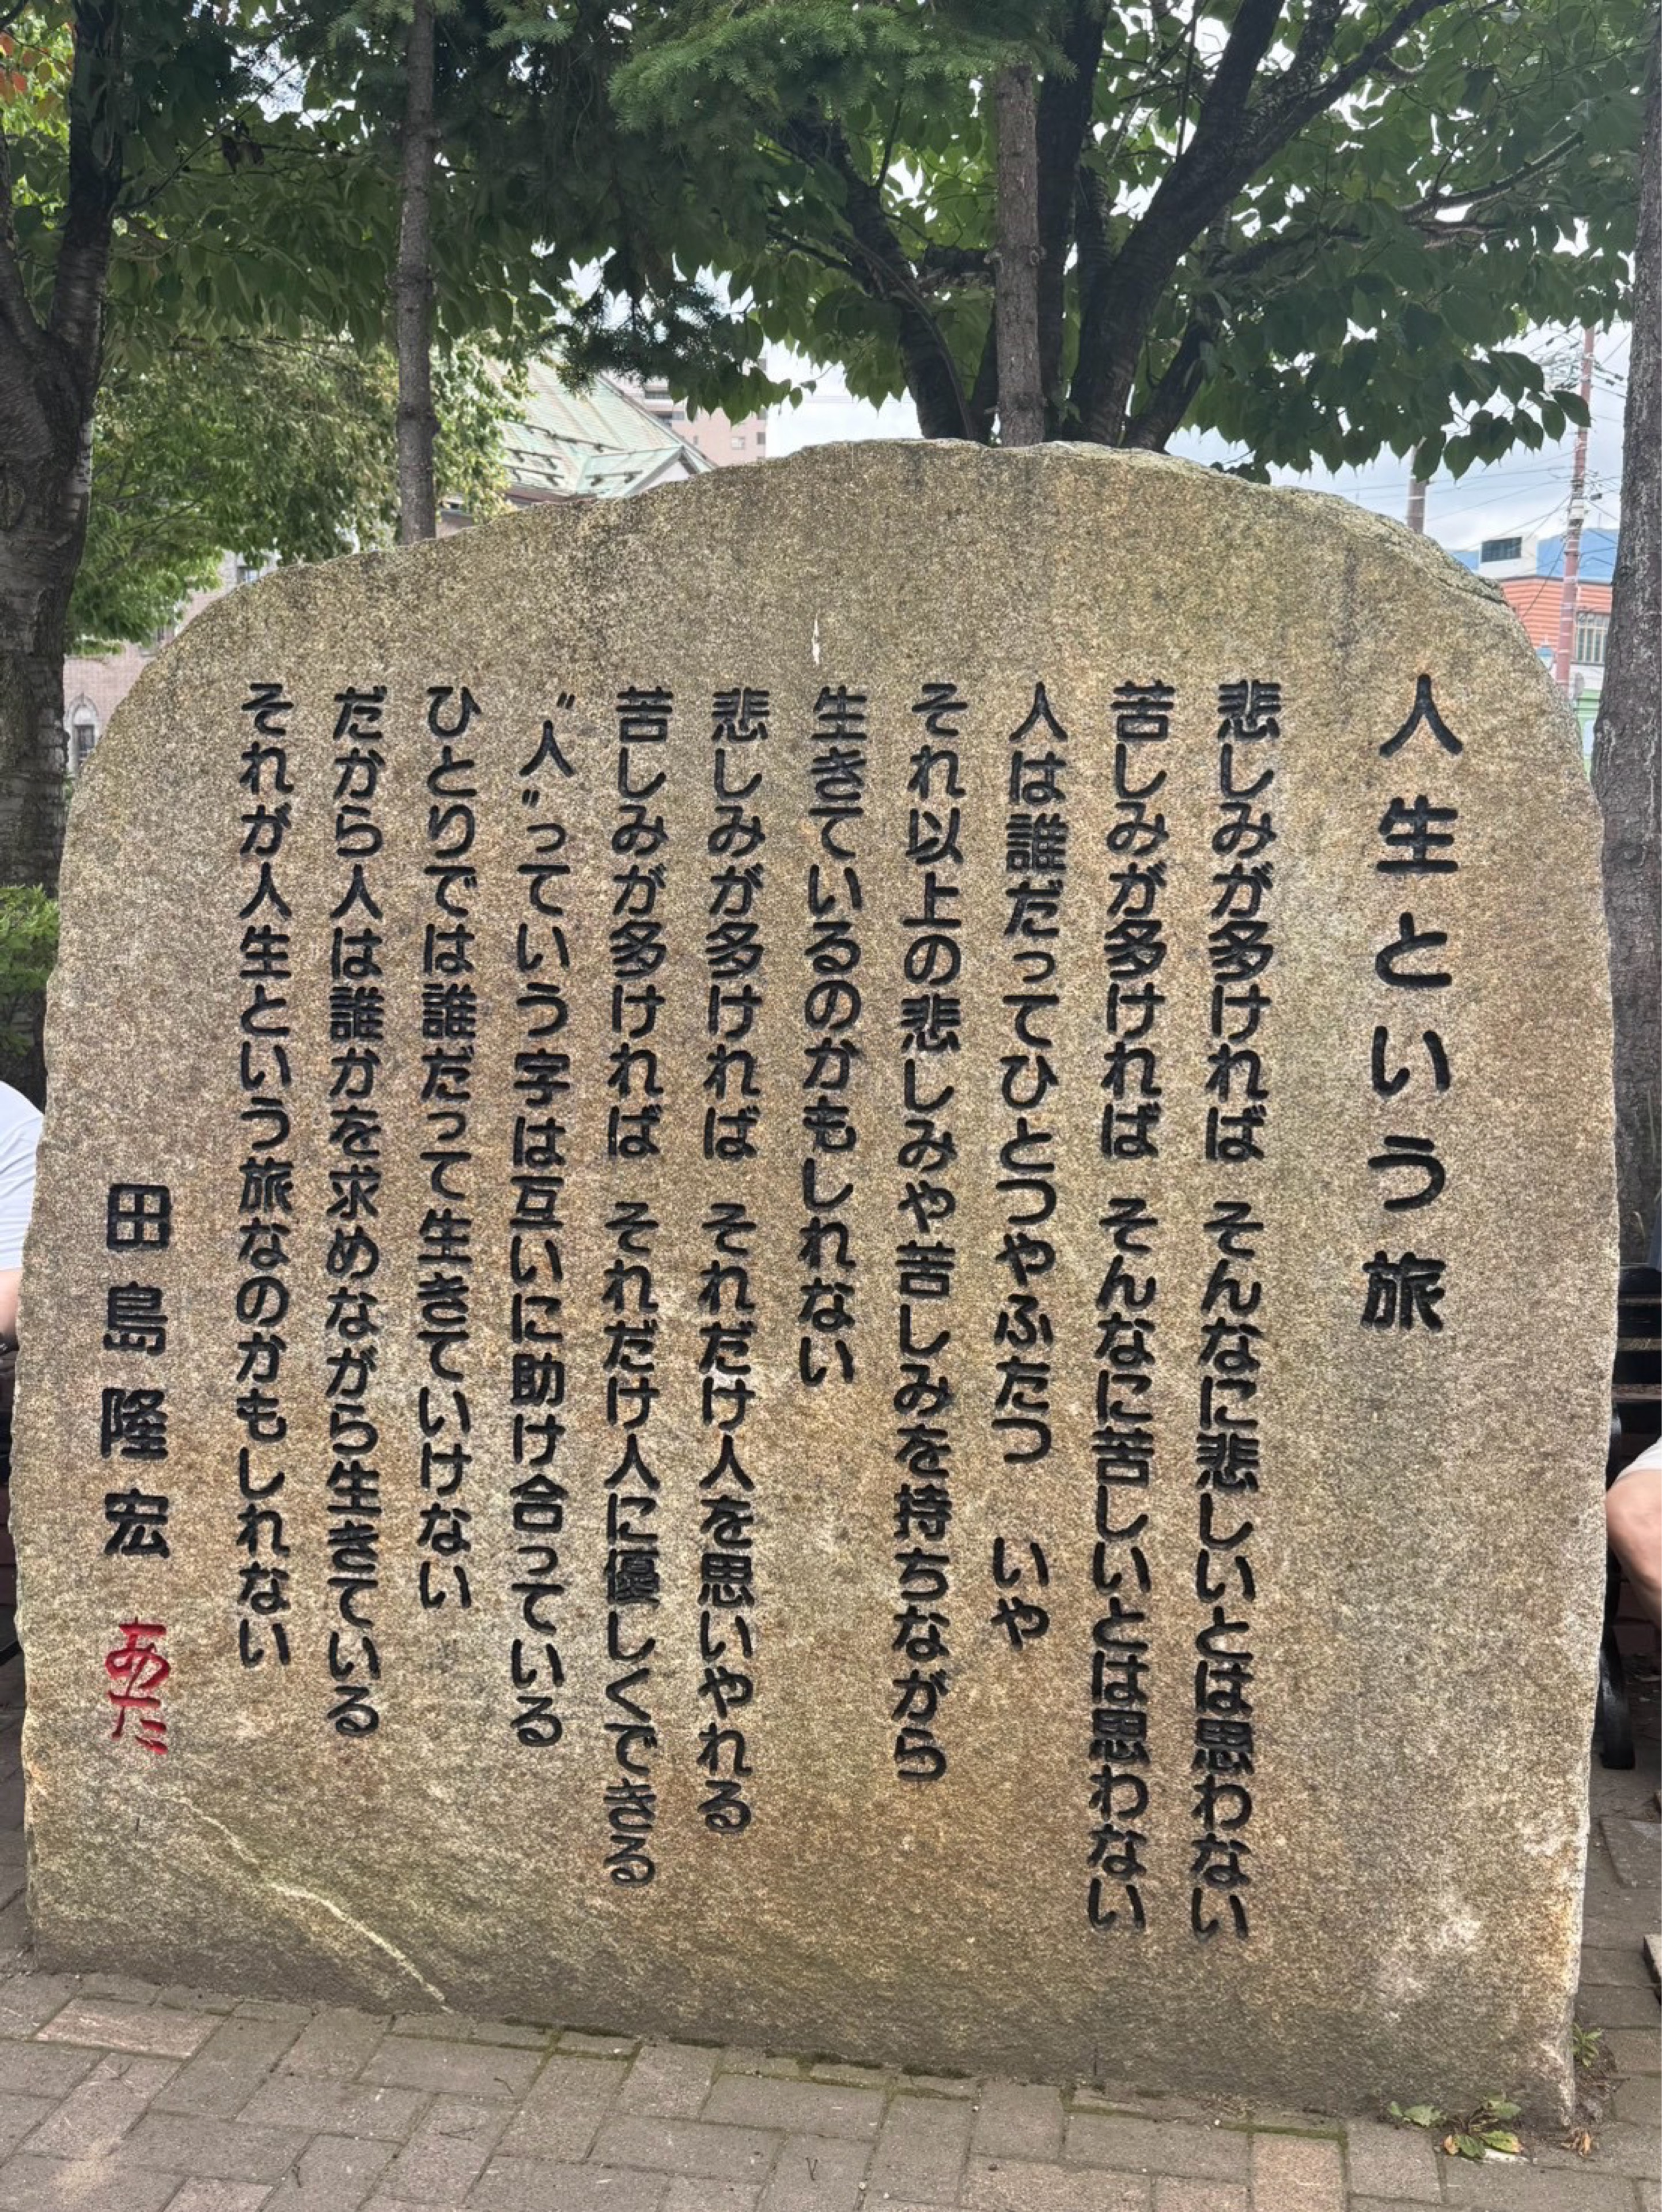 人生という旅
悲しみが多ければ そんなに悲しいとは思わない
苦しみが多ければ そんなに苦しいとは思わない
人は誰だってひとつやふたつ いや
それ以上の悲しみや苦しみを持ちながら
生きているのかもしれない
悲しみが多ければ それだけ人を思いやれる
苦しみが多ければ それだけ人に優しくできる
〝人〟っていう字は互いに助け合っている
ひとりでは誰だって生きていけない
だから人は誰かを求めながら生きている
それが人生という旅なのかもしれない
田島隆宏